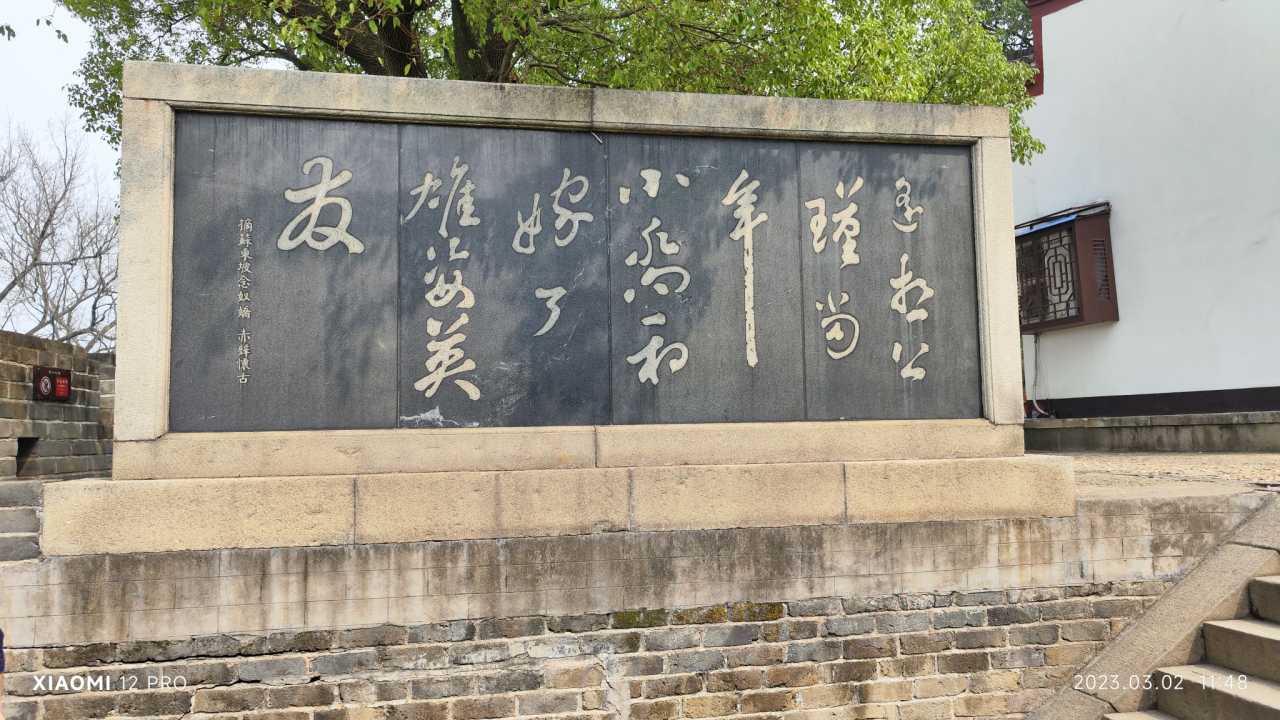 遥想公
瑾当
年
小喬初
嫁了
雄姿英
发
摘蘇東坡念奴嬌 赤壁懷古
XIAOMI 12 PRO
2023.03.02 11:48